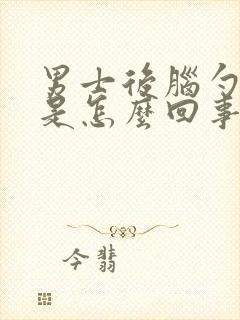 男士後腦勺
是怎麼回事
今翡